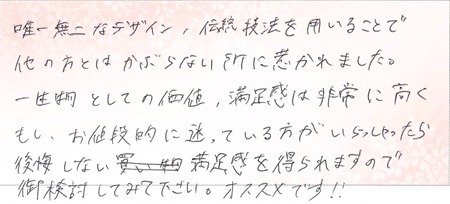 唯一無二なデザイン, 伝統技法を用いることで
他の方とはかぶらない所に惹かれました。
一生物としての価値, 満足感は非常に高く
もし、お値段的に迷っている方がいらっしゃったら
後悔しない買い物満足感を得られますので
御検討してみて下さい。オススメです!!